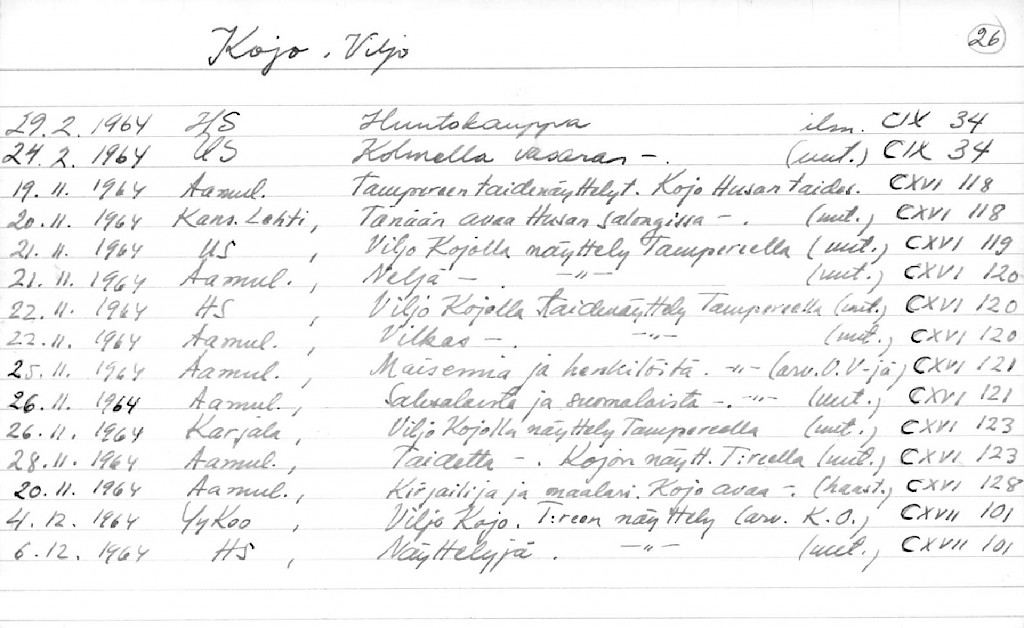 Kojo, Viljo 26
29.2.1964 HS Huutokauppa ilm. CIX 34
24.2.1964 US Kolmella vasaran -. (uut.) CIX 34
19.11.1964 Aamul. Tampereen taidenäyttelyt. Kojo Husan taides. CXVI 118
20.11.1964 Kans. Lehti, Tänään avaa Husan salongissa -. (uut.) CXVI 118
21.11.1964 US, Viljo Kojolla näyttely Tampereella (uut.) CXVI 119
21.11.1964 Aamul., Neljä -. -"- (uut.) CXVI 120
22.11.1964 HS, Viljo Kojolla taidenäyttely Tampereella (uut.) CXVI 120
22.11.1964 Aamul., Vilkas -. -"- (uut.) CXVI 120
25.11.1964 Aamul., Maisemia ja henkilöitä. -"- (arv. O.V-jä) CXVI 121
26.11.1964 Aamul., Saksalaista ja suomalaista -. -"- (uut.) CXVI 121
26.11.1964 Karjala, Viljo Kojolla näyttely Tampereella (uut.) CXVI 123
28.11.1964 Aamul., Taidetta -. Kojon näytt. T:reella (uut.) CXVI 123
20.11.1964 Aamul., Kirjailija ja maalari Kojo avaa -. (haast.) CXVI 128
4.12.1964 YyKoo, Viljo Kojo. T:reen näyttely (arv. K.O.) CXVII 101
6.12.1964 HS, Näyttelyjä. -"- (uut.) CXVII 101